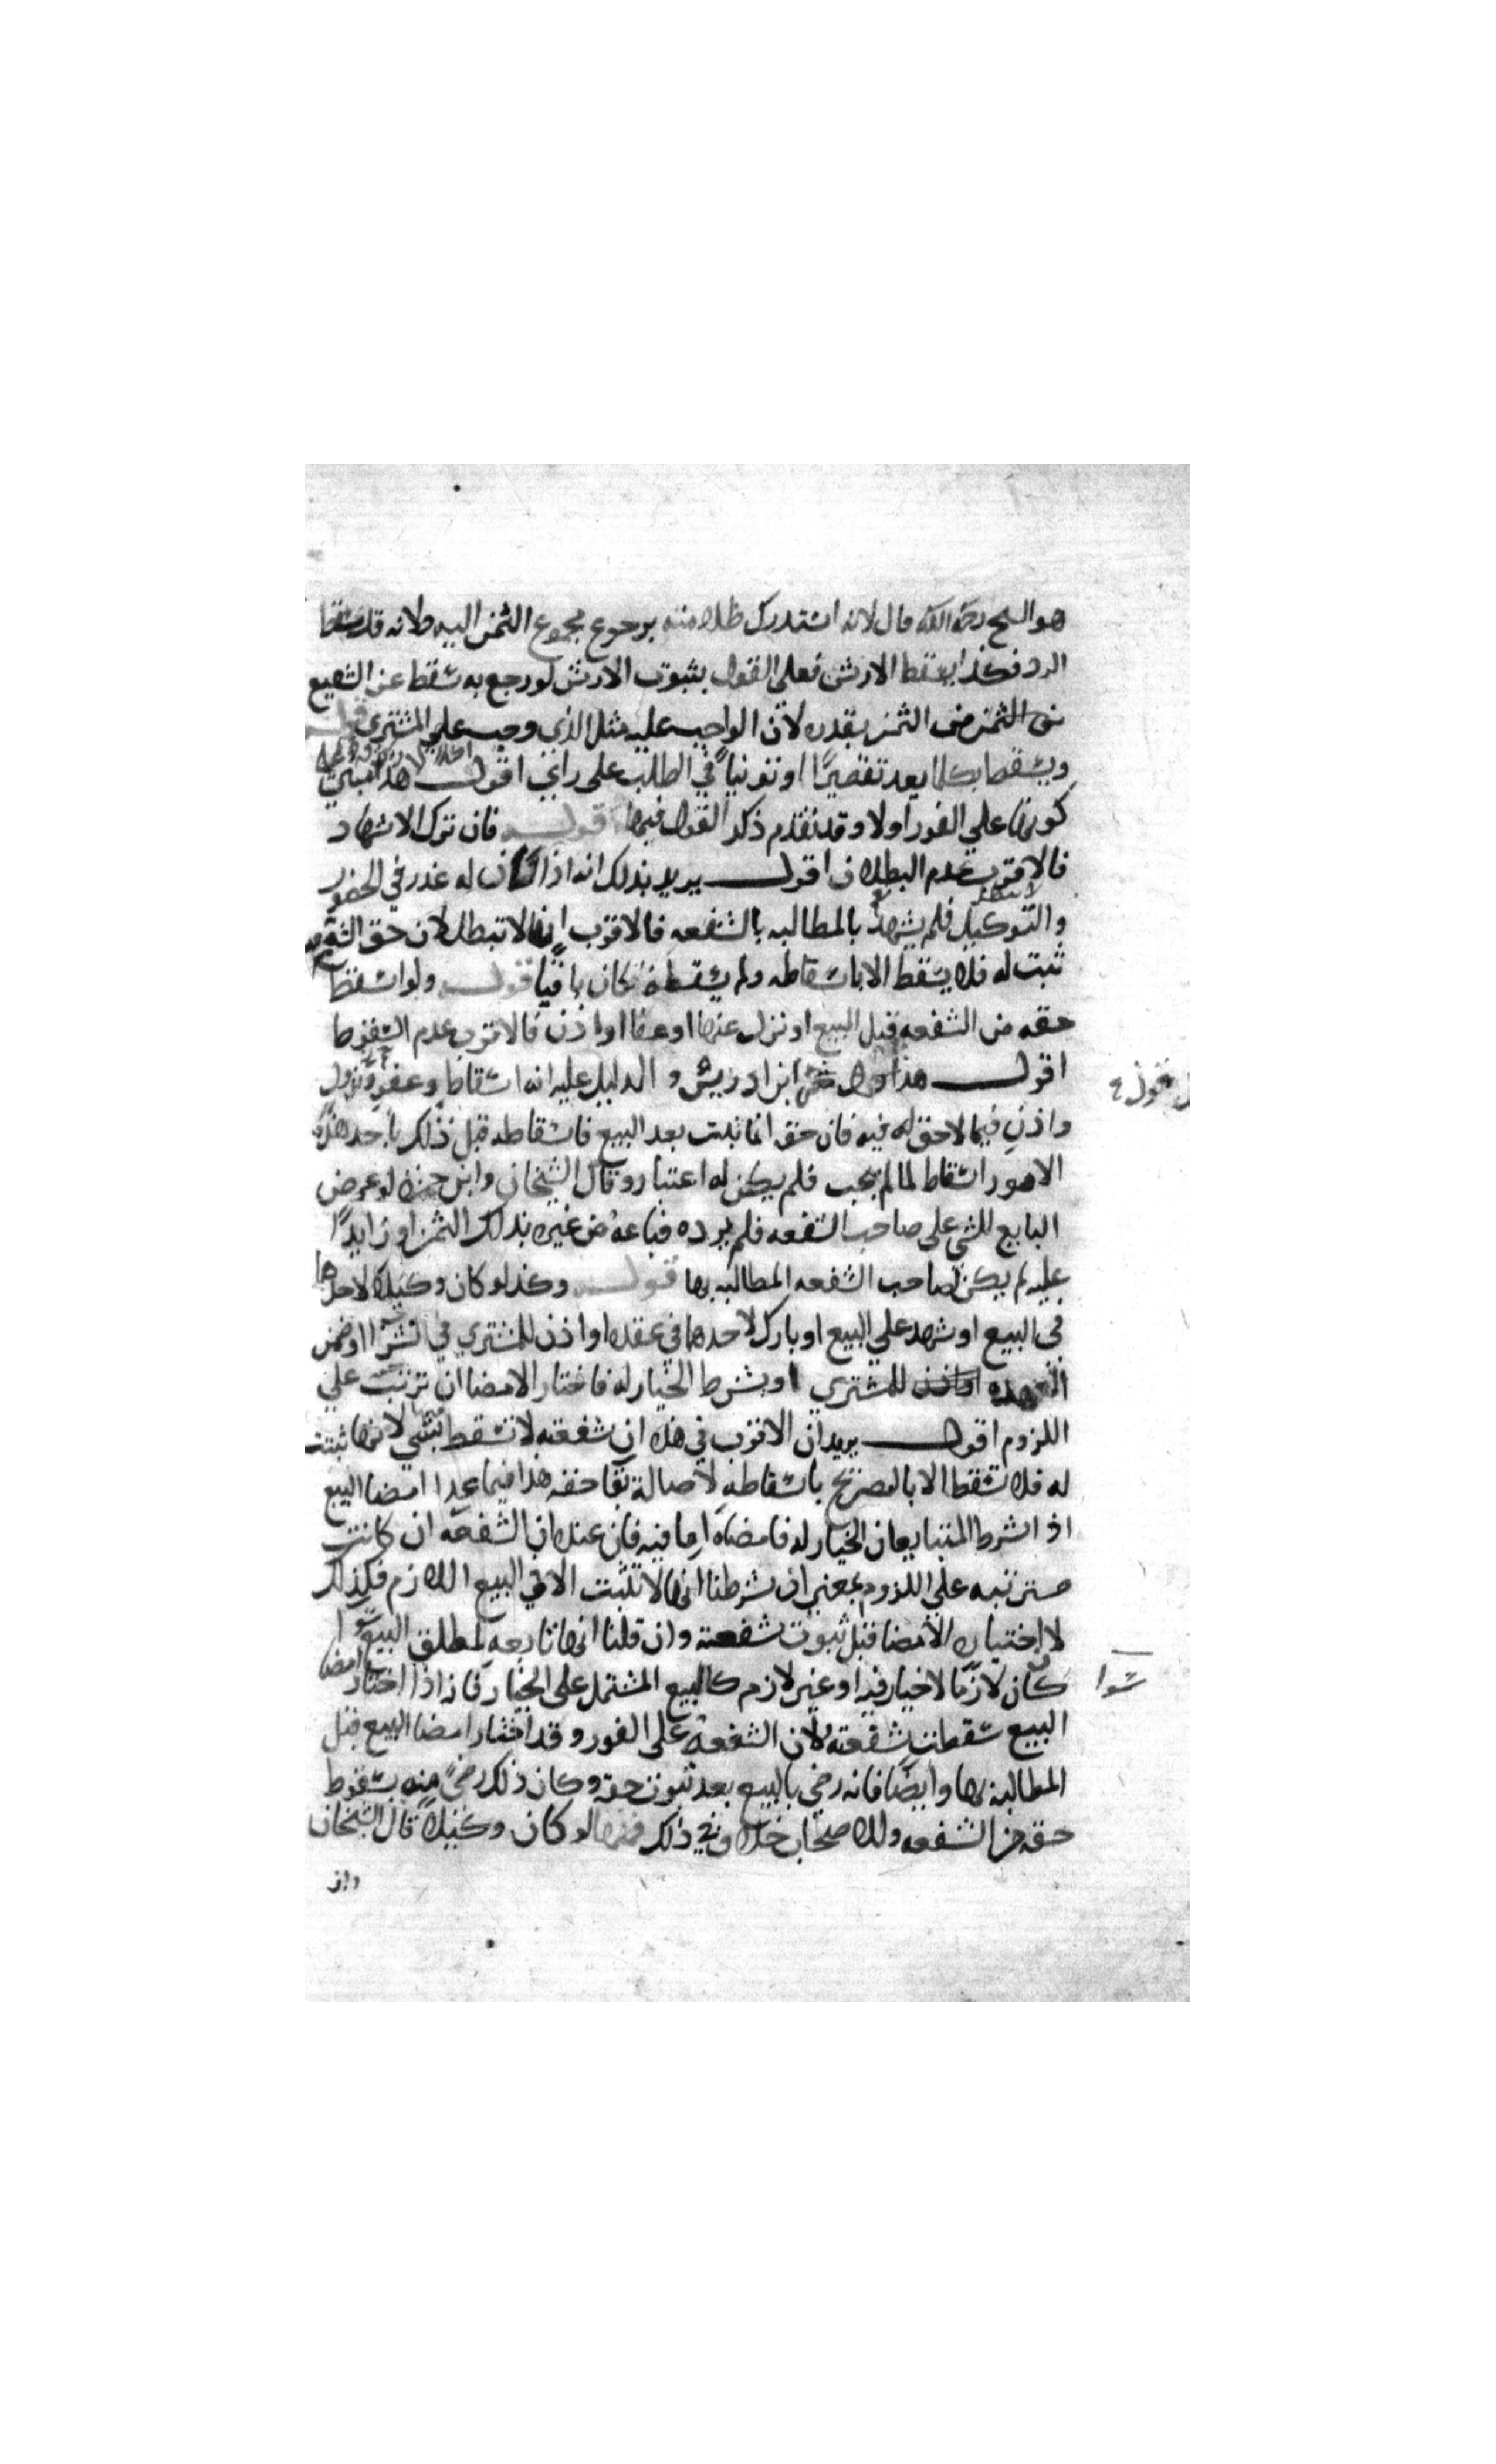 هو الشيخ رحمه الله قال لانه استدرك ظلامته برجوع مجموع الثمن اليه ولانه قد سقط
الرد فكذا يسقط الارش فعلى القول بثبوت الارش لو رجع به سقط عن الشفيع
من الثمن بقدره لان الواجب عليه مثل الذي وجب على المشتري قوله
ويسقط بكلما يعد تقصيرًا او توانيًا في الطلب على راي اقول هذا مبني
كونها على الفور اولا وقد تقدم ذكر القول فيها قوله فان ترك الاشهاد
فالاقرب عدم البطلان اقول يريد بذلك انه اذا كان له عذر في الحضور
والتوكيل فلم يشهد بالمطالبه بالشفعه فالاقرب انها لا تبطل لان حق الشفعه
ثبت له فلا يسقط الا باسقاطه ولم يسقطه فكان باقيًا قوله ولو اسقط
حقه من الشفعه قبل البيع او نزل عنها او عفا او اذن فالاقرب عدم السقوط
اقول هذا قول ابن ادريس والدليل عليه انه اسقاط وعفو ونزول
واذن فيما لا حق له فيه فان حقه انما يثبت بعد البيع فاسقاطه قبل ذلك باحد هذه
الامور اسقاط لما لم يجب فلم يكن له اعتبار وقال الشيخان وابن حمزه لو عرض
البايع الشي على صاحب الشفعه فلم يرده فباعه من غيره بذلك الثمن او زايدًا
عليه لم يكن لصاحب الشفعه المطالبه بها قوله وكذا لو كان وكيلا لاحدهما
في البيع او شهد على البيع او بارك لاحدهما في عقده او اذن للمشتري في الشرا او ضمن
العهده للمشتري او بشرط الخيار له فاختار الامضا ان ترتبت على
اللزوم اقول يريد ان الاقرب في هذه ان شفعته لا تسقط بشي منها لانها ثبتت
له فلا تسقط الا بالتصريح باسقاطه لاصالة بقا حقه هذا فيما عدا امضا البيع
اذا اشترط المتبايعان الخيار له فامضاه اما فيه فان عنده ان الشفعه ان كانت
مترتبه على اللزوم بمعنى ان شرطنا انها لا تثبت الا في البيع اللازم فكذلك
لاختياره الامضا قبل ثبوت شفعته وان قلنا انها تابعه لمطلق البيع سوا
كان لازمًا لا خيار فيه او غير لازم كالبيع المشتمل على الخيار فانه اذا اختار امضا
البيع سقطت شفعته لان الشفعه على الفور وقد اختار امضا البيع قبل
المطالبه بها وايضًا فانه رضي بالبيع بعد ثبوت حقه وكان ذلك رضىً منه بسقوط
حقه من الشفعه وللاصحاب خلاف في ذلك فمنها لو كان وكيلا قال الشيخان
سوا
وان